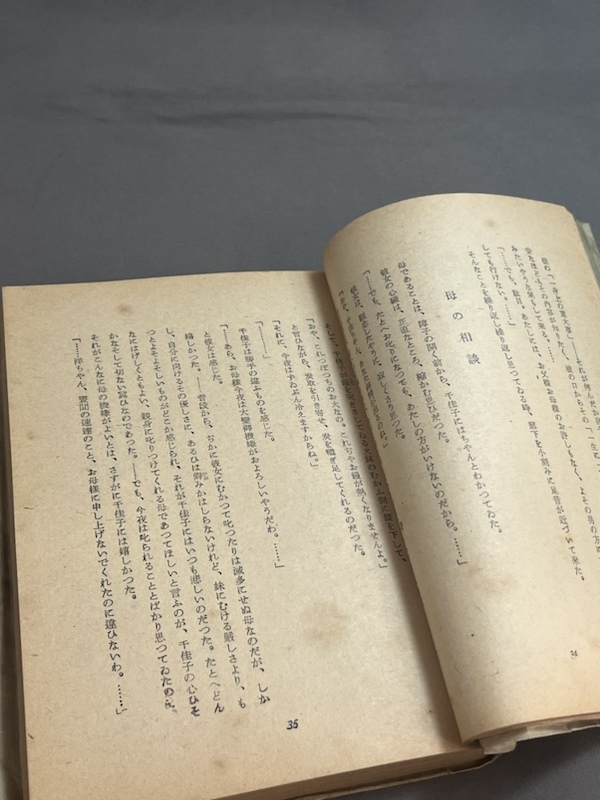 彼の「一身上の重大事」――それが何んだか
安なほどもその内容が知りたく、彼の口からその「一生に一
みたいやうな氣もして來る。……
「……でも、駄目。あたしには、お父樣お母樣のお許しもなく、よその男の方に
しても行けない。……」
そんなことを繰り返し繰り返し思つてゐる時、廊下を小刻みに足音が近づいて來た。
母の相談
母であることは、障子の開く前から、千佳子にはちやんとわかつてゐた。
彼女の心臟は、正直なところ、縮かむ思ひだつた。
「……でも、たとへお叱りになつても、あたしの方がいけないのだから。……」
彼女は、觀念したやうに、哀しくさう思つた。
34
そして、
に腰を下して、
「おや、これつぽつちのお火なの。これぢやお餅が熱くなりませんよ。」
と言ひながら、炭取を引き寄せ、炭を繼ぎ足してくれるのだつた。
「それに、今夜はずゐぶん冷えますからね。」
「………」
千佳子は勝手の違ふものを感じた。
「……あら、お母樣今夜は大變御機嫌がおよろしいやうだわ。……」
と彼女は感じた。
嬉しかつた。――普段から、ぢかに彼女にむかつて叱つたりは滅多にせぬ母なのだが、しか
し、自分に向けるその優しさに、あるひは僻みかはしらないけれど、妹にむける嚴しさより、も
つとよそよそしいものがどこか感じられ、それが千佳子にはいつも悲しいのだつた。たとへどん
なにはげしくともよい、親身に叱りつけてくれる母であつてほしいと言ふのが、千佳子の心ひそ
かなそして切ない冀ひなのであつた。――でも、今夜は叱られることとばかり思つてゐたのに、
それがこんなに母の機嫌がよいとは、さすがに千佳子には嬉しかつた。
「……祥ちやん、晝間の速達のこと、お母樣に申し上げないでくれたのに違ひないわ。……」
35